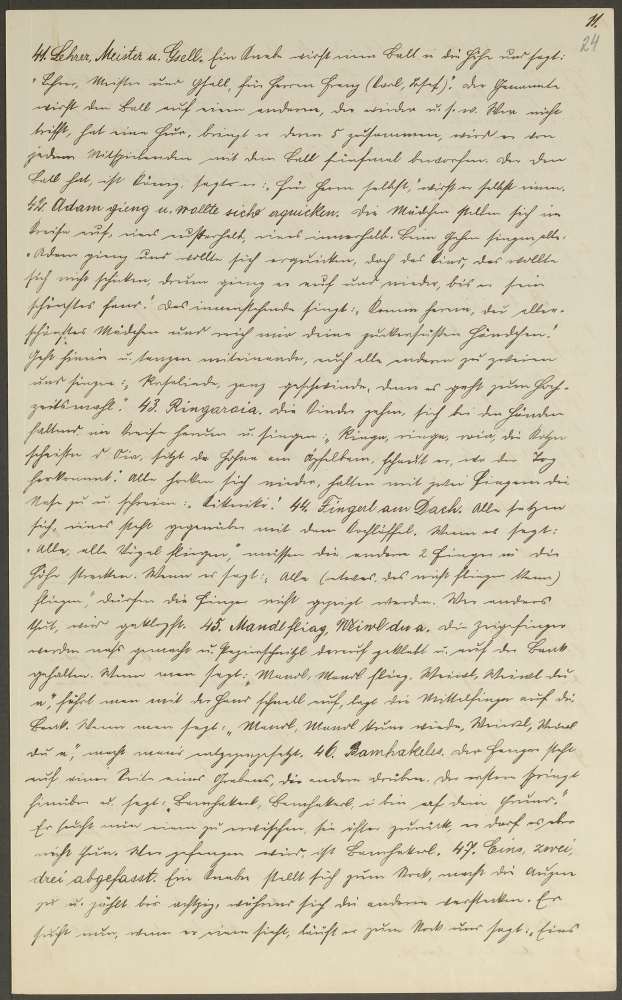 11.
24
41. Lehrer, Meister u. Gsell. Ein Knabe wirft einen Ball in die Höhe und sagt:
"Lehrer, Meister und Gsell, für Herrn Franz (Karl, Josef)". Der Genannte
wirft den Ball auf einen anderen, der wieder u. s. w. Wer nicht
trifft, hat eine Hur, bringt er deren 5 zusammen, wird er von
jedem Mitspielenden mit dem Ball fünfmal beworfen. Der den
Ball hat, ist König, sagt er: "Für Herrn selbst," wirft er selbst einen.
42. Adam gieng u. wollte sich aquicken. Die Mädchen stellen sich im
Kreise auf, eines außerhalb, eines innerhalb. Beim Gehen singen alle:
"Adam gieng und wollte sich erquicken, doch das Eins, das wollte
sich nicht schicken, drum gieng er auf und nieder, bis er sein
schönstes fand." Das innenstehende singt: "Komm herein, du aller-
schönstes Mädchen und reich mir deine zuckersüßen Händchen!"
Geht hinein u. tanzen miteinander, auch alle andern zu zweien
und singen: "Rosalinde, ganz geschwinde, denn es geht zum Hoch-
zeitsmahl". 43. Ringaraia. Die Kinder gehen, sich bei den Händen
haltend im Kreise herum u. singen: "Ringa, ringa, raia, die Katzn
scheißn d Oia, sitzt da Hahna am Apfelbam, schaut er, wo der Tog
herkommt." Alle hocken sich nieder, halten mit zwei Fingern die
Nase zu u. schreien: "Kikeriki!" 44. Fingerl am Dach. Alle setzen
sich, eines steht gegenüber mit dem Kochlöffel. Wenn es sagt:
"Alle, alle Vögel fliegen," müssen die andern 2 Finger in die
Höhe strecken. Wenn es sagt: "Alle (etwas, das nicht fliegen kann)
fliegen," dürfen die Finger nicht gezeigt werden. Wer anders
thut, wird geklopft. 45. Mandl fliag, Weiwl du a. Die Zeigefinger
werden naß gemacht u. Papierschnitzl darauf geklebt u. auf der Bank
gehalten. Wenn man sagt: "Mandl, Mandl flieg, Weiwl, Weiwl du
a", fährt man mit der Hand schnell auf, legt die Mittelfinger auf die
Bank. Wenn man sagt: "Mandl, Mandl kum wieda, Weiwal, Weiwal
du a", macht man's entgegengesetzt. 46. Bamhakeles. Der Fanger steht
auf einer Seite eines Grabens, die andern drüben. Der erstere springt
hinüber u. sagt: "Bamhakerl, Bamhakerl, i bin af dein Grund."
Er sucht nun einen zu erwischen, sie ihn zurück, er darf es aber
nicht thun. Wer gefangen wird, ist Bamhakerl. 47. Eins, zwei,
drei abgefasst. Ein Knabe stellt sich zum Stock, macht die Augen
zu u. zählt bis achtzig, während sich die anderen verstecken. Er
sucht nun, wenn er einen sieht, läuft er zum Stock und sagt: "Eins